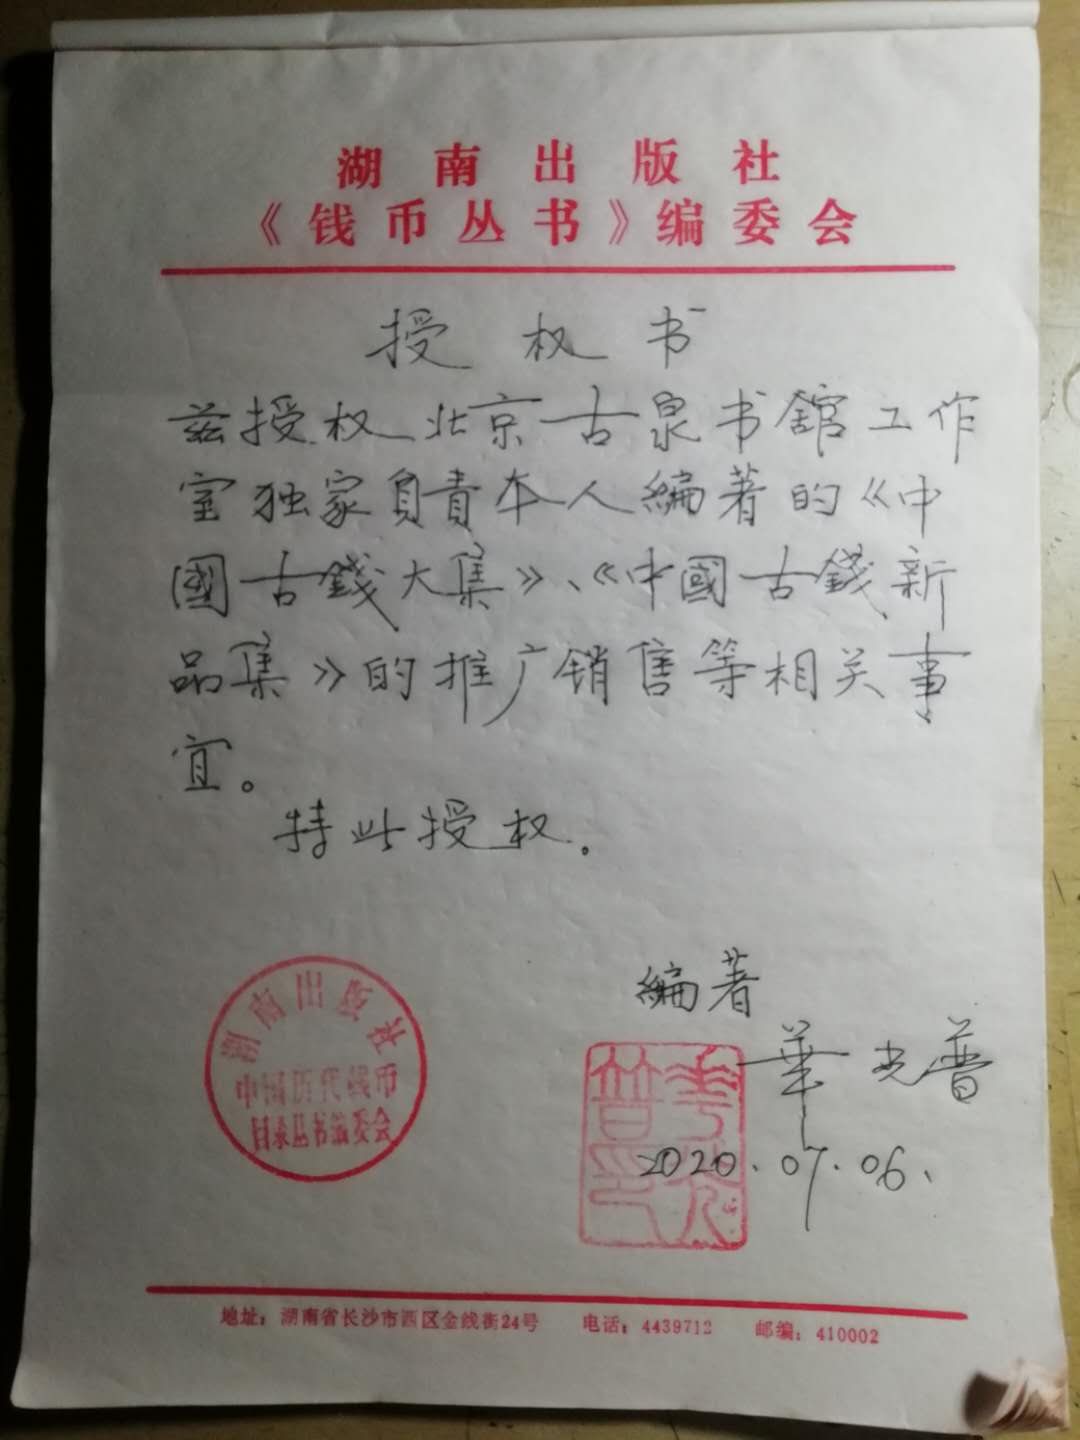 湖南出版社
《钱币丛书》编委会
授权书
兹授权北京古泉书舘工作
室独家負責本人編著的《中
國古錢大集》、《中國古錢新
品集》的推广销售等相关事
宜。
特此授权.
編著
華光普
2020.07.06.
湖南出版社
中国历代钱币
目录丛书编委会
華光普印
地址：湖南省长沙市西区金线街24号 电话：4439712 邮编：410002